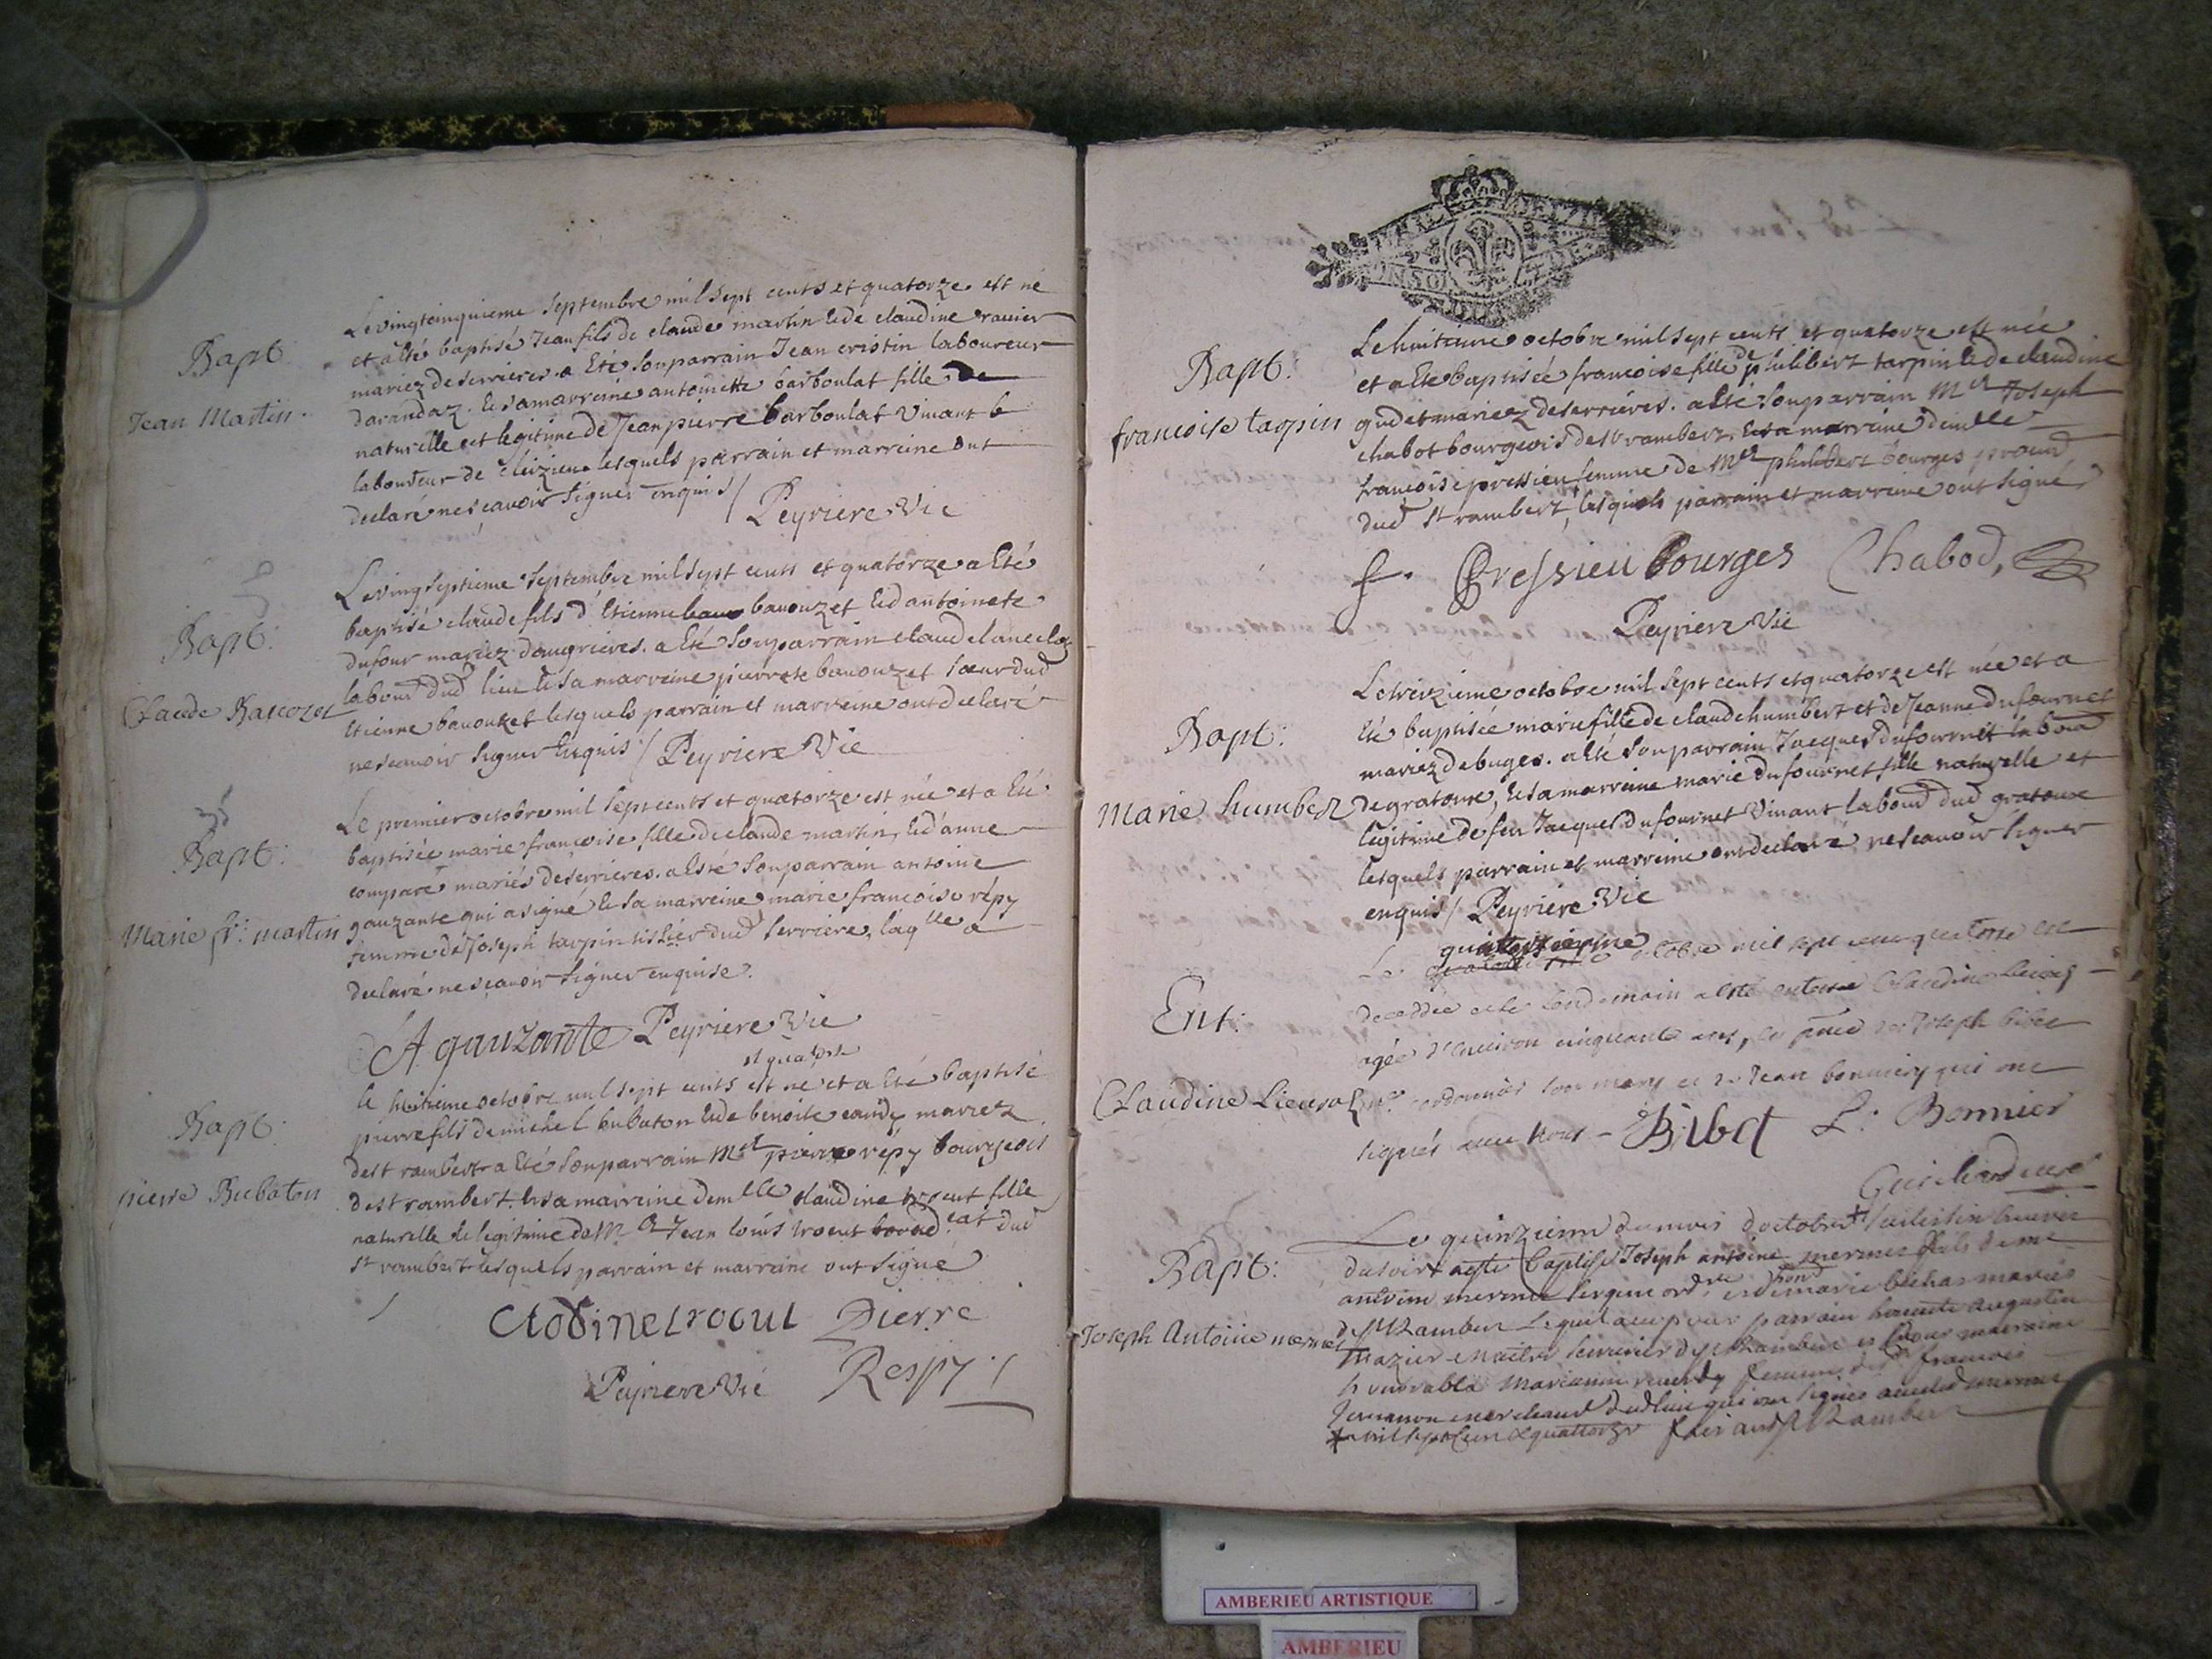 Bapt:
Jean Martin.
Le vingtcinquieme septembre mil sept cents et quatorze est né
et a été baptisé Jean fils de claude martin et de claudine ravier
mariez de serrieres a été son parrain Jean cristin laboureur
darandaz. et sa marreine antoinette barboulat fille de
naturelle et legitime de Jean pierre barboulat vivant
laboureur de lesquels parrain et marreine ont
declaré ne scavoir signer enquis / Peyriere Vic
Bapt:
Claude Bavozet
Le vingseptieme septembre mil sept cents et quatorze a eté
baptisé claude fils d'etienne bavouzet et d'antoinete
dufour mariez d'augrieres. a été son parrain claude
labour dud lieu et sa marreine pierrete bavouzet soeur dud
etienne bavouzet lesquels parrain et marreine ont declaré
ne scavoir signer enquis / Peyriere Vic
Bapt:
Marie fr: martin
Le premier octobre mil sept cents et quatorze est née et a eté
baptisée marie francoise fille de claude martin, et d'anne
comparé mariés de serrieres. a esté son parrain antoine
gauzante qui a signé et sa marreine marie francoise répy
femme de Joseph tarpin tissier dud serriere, laqlle a
declaré ne scavoir signer enquise.
A gauzante Peyriere Vic
Bapt:
pierre Bubaton
et quatorze
le huitieme octobre mil sept cents est né et a eté baptisé
pierre fils de michel bubaton et de benoite mariez
de st rambert a eté son parrain Mre pierre répy bourgeois
de st rambert. et sa marreine demlle claudine trocut fille
naturelle et legitime de Mr Jean louis trocut dud
st rambert lesquels parrain et marreine ont signé
Clodine trocut Pierre
Peyriere Vic Respy
Bapt:
francoise tarpin
Le huitieme octobre mil sept cents et quatorze est née
et a eté baptisée francoise fille de philibert tarpin et de claudine
gudet mariez de serrieres. a eté son parrain Mre Joseph
chabot bourgeois de st rambert, et sa marreine demlle
francoise pressieu femme de Mre philibert bourges
dud st rambert, lesquels parrain et marreine ont signé
f. Pressieu bourges Chabod,
Peyriere Vic
Bapt:
Marie humbert
Le treizieme octobre mil sept cents et quatorze est née et a
eté baptisée marie fille de claude humbert et de Jeanne dufournet
mariez de buges. a eté son parrain Jacques dufournet labour
de gratoux, et sa marreine marie dufournet fille naturelle et
legitime de feu Jacques dufournet vivant labour dud gratoux
lesquels parrain et marreine ont declaré ne scavoir signer
enquis / Peyriere Vic
Ent:
Claudine Lieuraz
quatorzieme
Le octobre mil sept cens quatorze est
decedée et le lendemain a esté enterrée Claudine
agée d'environ cinquante ans, en pnce de Joseph bibet
cordonnier son mary et de Jean bonnier qui ont
signés avec nous - Bibet L: Bonnier
Guichard curé
Bapt:
Joseph Antoine mermet
Le quinzieme du mois d'octobre
du soir a esté baptisé Joseph antoine mermet fils de me
mermet sergent ordre et de marie mariés
de St Rambert lequel a eu pour parrain honnete augustin
de St Rambert et pour marraine
honorable femme de francois
marchand dud lieu qui ont signés avec led mermet
+ mil sept cens & quattorze fait a St Rambert
AMBERIEU ARTISTIQUE
AMBERIEU